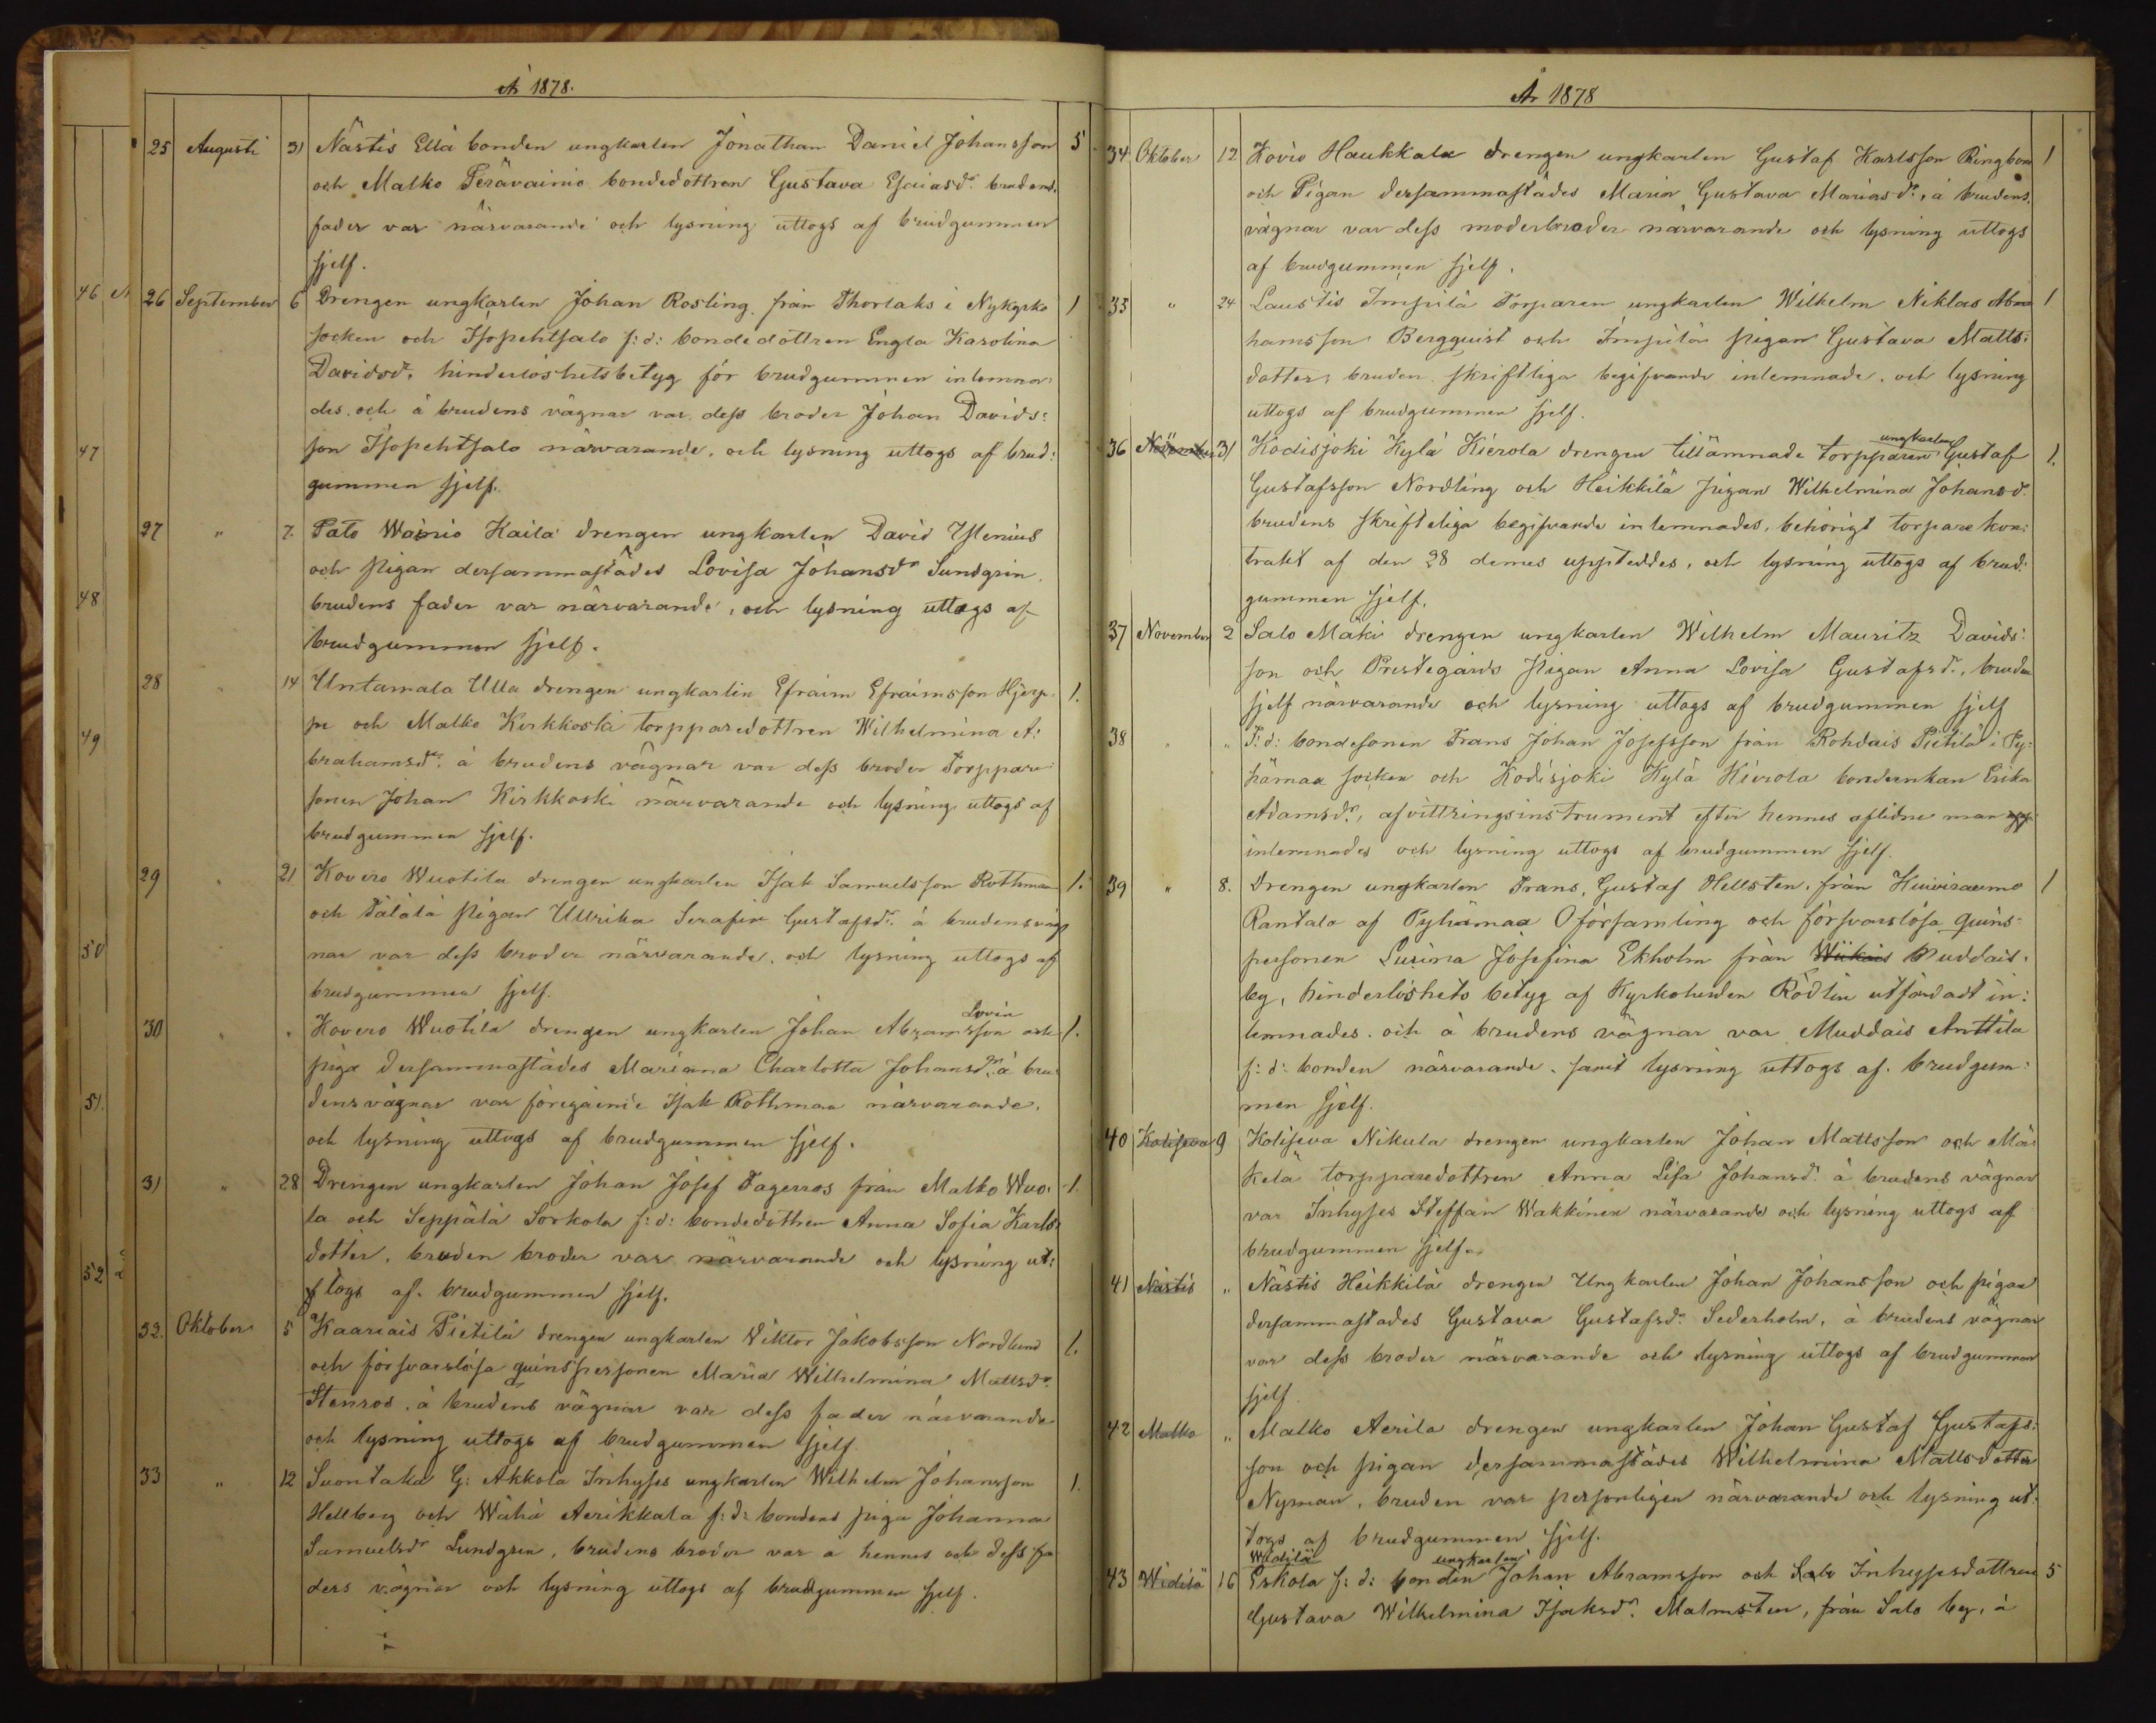 År 1878.
25 Augusti 31 Nästis Ellä bonden ungkarlen Jonathan Daniel Johansson 5
och Malko Perävainio bondedottren Gustava Esaiasdr. brudens
fader var närvarande och lysning uttogs af brudgummen
sjelf.
46
26 September 6 Drengen ungkarlen Johan Rosling från Thorlaks i Nykyrko 1
socken och Isopehtsalo f:d: bondedottren Engla Karolina
Davidsdr, hinderlöshetsbetyg för brudgummen inlemna
des och å brudens vägnar var dess broder Johan Davids:
47
son Isopehtsalo närvarande, och lysning uttogs af brud:
gummen sjelf.
27 " 7. Pato Wainio Kaila drengen ungkarlen David Ylenius
och pigan dersammastädes Lovisa Johansdr Sundgrin,
48
brudens fader var närvarande, och lysning uttogs af
brudgummen sjelf.
28 " 14 Untamala Ulla drengen ungkarlen Efraim Efraimsson Hjerp: 1.
pe och Malko Kirkkoski torpparedottren Wilhelmina A:
49
brahamsdr. å brudens vägnar var dess broder Torppare
sonen Johan Kirkkoski närvarande och lysning uttogs af
brudgummen sjelf.
29 " 21 Kovero Wuotila drengen ungkarlen Isak Samuelsson Rothman 1.
och Tälälä pigan Ullrika Serafia Gustafsdr. å brudens väg
50
nar var dess broder närvarande, och lysning uttogs af
brudgummen sjelf.
Lovin
30 " " Kovero Wuotila drengen ungkarlen Johan Abramsson och 1.
piga dersammastädes Marianna Charlotta Johansdr, å bru
51.
dens vägnar var föregående Isak Rothman närvarande,
och lysning uttogs af brudgummen sjelf.
31 " 28 Drengen ungkarlen Johan Josef Fagerros från Malko Wuo: 1.
la och Seppälä Sorkola f:d: bondedottren Anna Sofia Karls
dotter, bruden broder var närvarande och lysning ut:
52
togs af brudgummen sjelf.
32. Oktober 5 Kaariais Pietilä drengen ungkarlen Viktor Jakobsson Nordlund 1.
och försvarslösa quinspersonen Maria Wilhelmina Mattsdr.
Stenros, å brudens vägnar var dess fader närvarande
och lysning uttogs af brudgummen sjelf.
33 " 12 Suontaka G: Akkola Inhyses ungkarlen Wilhelm Johansson 1.
Hellberg och Wähä Aerikkala f:d: bondens piga Johanna
Samuelsdr Lundgren, brudens broder var å hennes och dess fa
ders vägnar och lysning uttogs af brudgummen sjelf.
År 1878
34 Oktober 12 Kovio Haukkala drengen ungkarlen Gustaf Karlsson Ringbom 1
och Pigan dersammastädes Maria Gustava Mariasdr, å brudens
vägnar var dess moderbroder närvarande och lysning uttogs
af brudgummen sjelf.
35 " 24 Laustis Impilä Torparen ungkarlen Wilhelm Niklas Abra 1
hamsson Bergquist och Impilä pigan Gustava Matts:
dotter, bruden skriftliga begifvande inlemnade, och lysning
uttogs af brudgummen sjelf.
ungkarlen
36 November 31 Kodisjoki Kylä Kierola drengen tillämnade torpparen Gustaf 1.
Gustafsson Nordling och Heikkilä pigan Wilhelmina Johansdr.
brudens skriftliga begifvande inlemnades, behörigt torpare kon:
trakt af den 28 dennes uppteddes, och lysning uttogs af brud:
gummen sjelf.
37 November 2 Salo Mäki drengen ungkarlen Wilhelm Mauritz Davids:
son och Prestegårds pigan Anna Lovisa Gustafsdr., bruden
sjelf närvarande och lysning uttogs af brudgummen sjelf
38 " " F:d: bondesonen Frans Johan Josefsson från Rohdais Pietilä i Py:
hämaa socken och Kodisjoki Kylä Kierola bondeenkan Erika
Adamsdr, afvittringsinstrument efter hennes aflidne man
inlemnades och lysning uttogs af brudgummen sjelf.
39 " 8. Drengen ungkarlen Frans Gustaf Hellsten från Kuivisaumo 1
Rantala af Pyhämaa Oförsamling och försvarslösa quins-
personen Lusina Josefina Ekholm från Wäkais Muddais
by, hinderlöshets betyg af Kyrkoherden Rödlin utfärdadt in:
lemnades och å brudens vägnar var Muddais Anttila
f:d: bonden närvarande, samt lysning uttogs af brudgum:
men sjelf.
40 Koliseva 9 Koliseva Nikula drengen ungkarlen Johan Mattsson och Mä:
kelä torpparedottren Anna Lisa Johansdr. å brudens vägnar
var Inhyses Steffan Wakkinen närvarande och lysning uttogs af
brudgummen sjelf.
41 Nästis " Nästis Heikkilä drengen Ungkarlen Johan Johansson och pigan
dersammastädes Gustava Gustafsdr Sederholm, å brudens vägnar
var dess broder närvarande och lysning uttogs af brudgummen
sjelf
42 Malko " Malko Aerila drengen ungkarlen Johan Gustaf Gustafs:
son och pigan dersammastädes Wilhelmina Mattsdotter
Nyman, bruden var personligen närvarande och lysning ut:
togs af brudgummen sjelf.
Widilä ungkarlen
43 Widilä 16 Eskola f:d: bonden Johan Abramsson och Salo Inhysesdottren 5
Gustava Wilhelmina Isaksdr. Malmsten, från Salo by, å